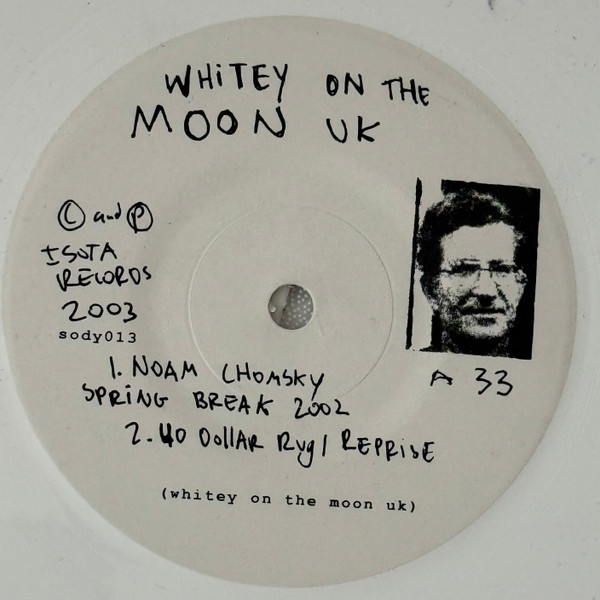 WHITEY ON THE
MOON UK
© and ℗
ISOTA
RECORDS
2003
sody013
A 33
1. NOAM CHOMSKY
SPRING BREAK 2002
2. 40 DOLLAR RUG / REPRISE
(whitey on the moon uk)